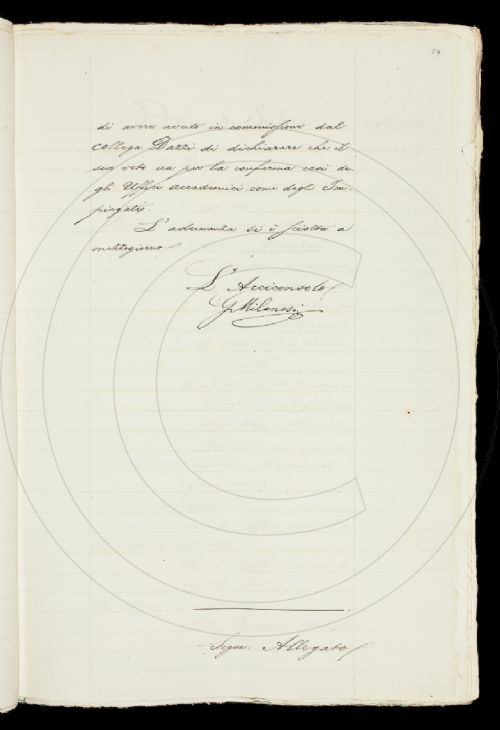 59
di avere avuto in commissione dal
Collega Dazzi di dichiarare che il
suo voto era per la conferma così de
gli Uffici accademici come degli Im-
piegati.
L'adunanza si è sciolta a
mezzogiorno
L'Arciconsolo
G Milanesi
Segue: Allegato